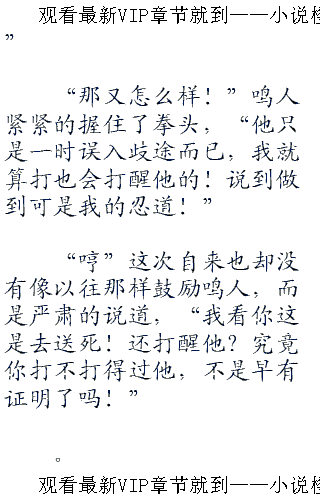 观看最新VIP章节就到——小说
”
“那又怎么样！”鸣人
紧紧的握住了拳头，“他只
是一时误入歧途而已，我就
算打也会打醒他的！说到做
到可是我的忍道！”
“哼”这次自来也却没
有像以往那样鼓励鸣人，而
是严肃的说道，“我看你这
是去送死！还打醒他？究竟
你打不打得过他，不是早有
证明了吗！”
。
观看最新VIP章节就到——小说